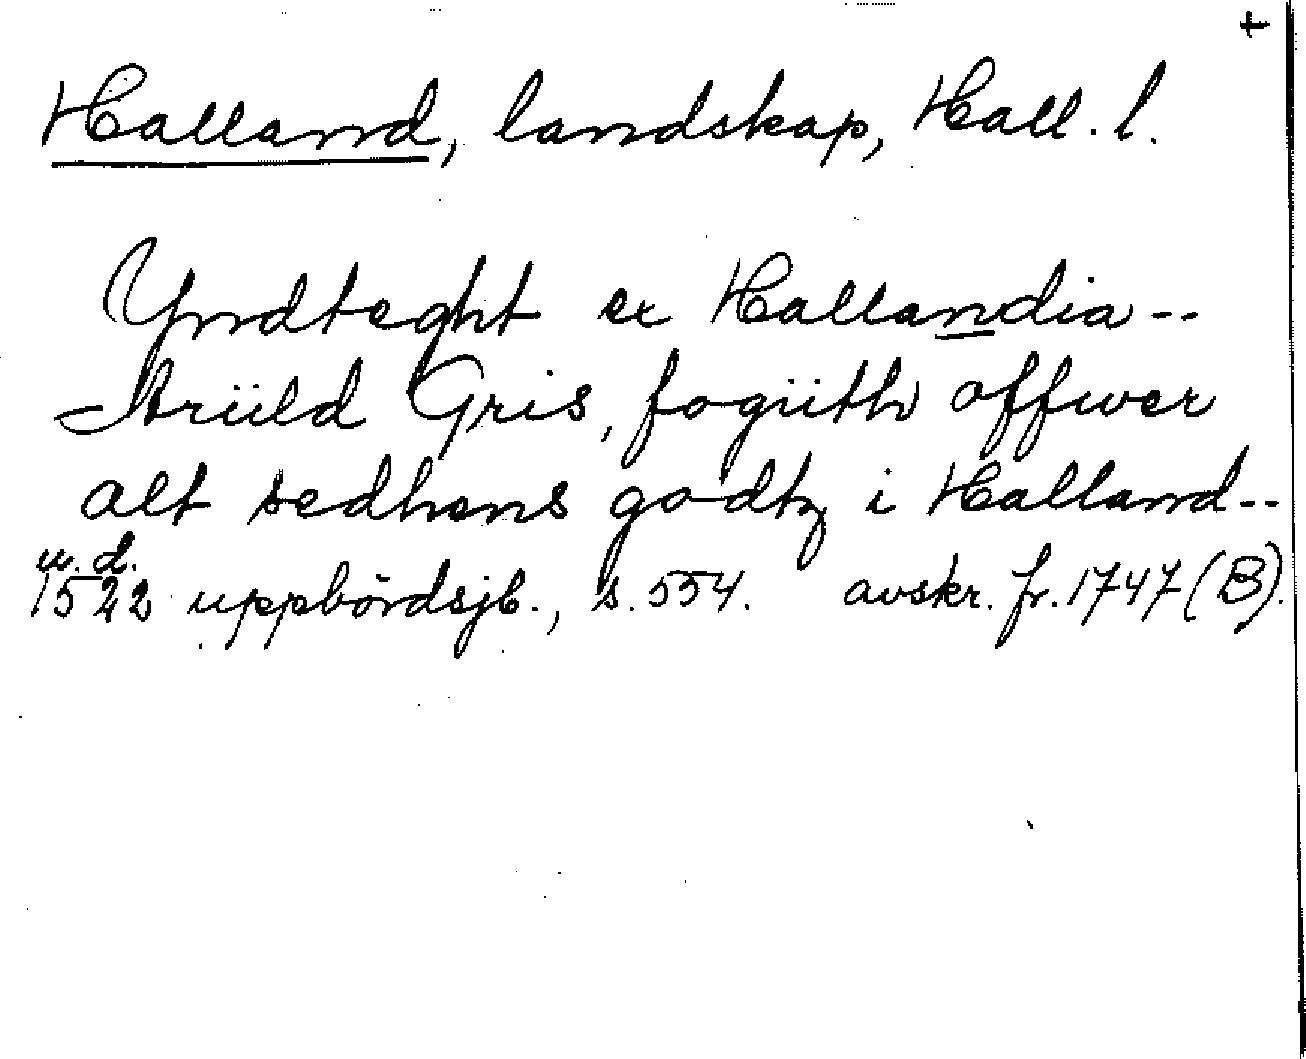 +
Halland, landskap, Hall. l.
Yndteght ex Hallandia --
Strüld Gris, fogüth offwer
alt sedhens godtz i Halland --
u. d.
1522 uppbördsjb., s. 554. avskr. fr. 1747 (B).